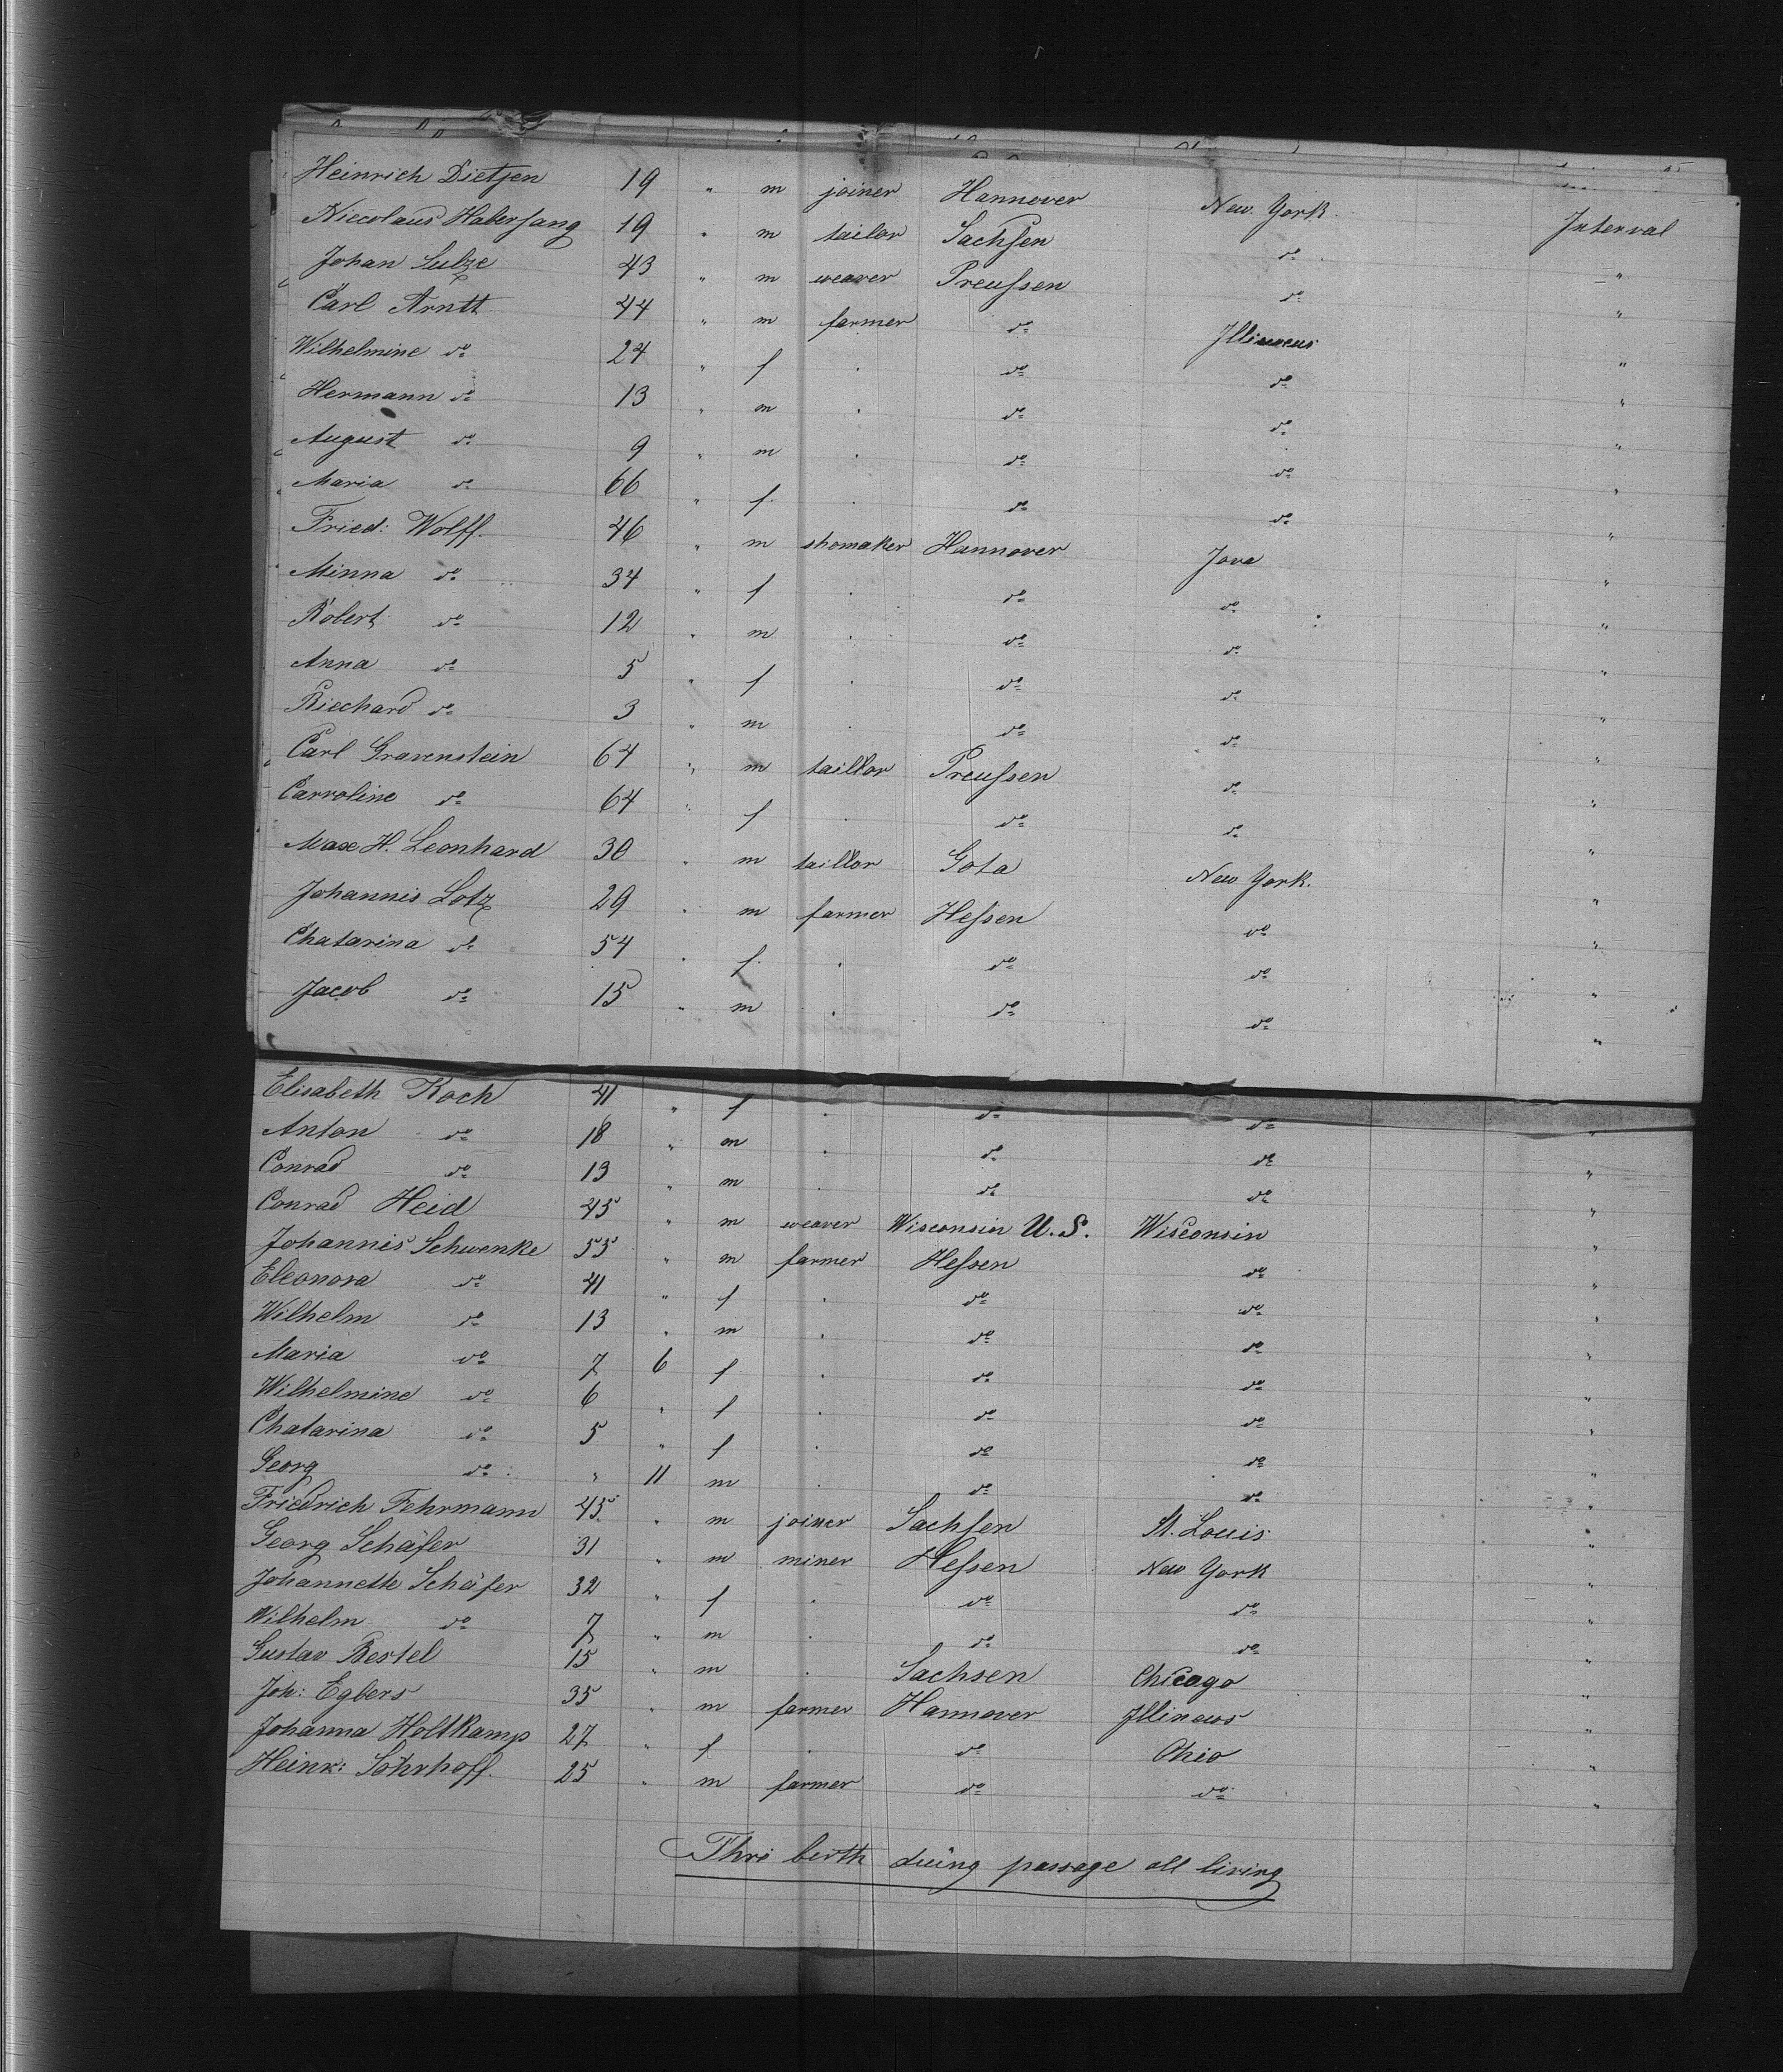 Heinrich Dietjen 19 " m joiner Hannover New York. Interval
Niecolaus Habersang 19 " m tailor Sachsen do "
Johan Sulze 43 " m weaver Preussen do "
Carl Arntt 44 " m farmer do Illineus "
Wilhelmine do 24 " f . do do "
Hermann do 13 " m . do do "
August do 9 " m . do do "
Maria do 66 " f. . do do "
Fried: Wolff. 46 " m shomaker Hannover Jova "
Minna do 34 " f . do do "
Robert do 12 " m . do do "
Anna do 5 " f . do do "
Riechard do 3 " m . do do "
Carl Gravenstein 64 " m taillor Preussen do "
Carroline do 64 " f . do do "
Max H. Leonhard 30 " m taillor Gota New York. "
Johannis Lotz 29 " m farmer Hessen do "
Chatarina do 54 " f. . do do "
Jacob do 15 " m . do do "
Elisabeth Koch 41 " f . do do "
Anton do 18 " m . do do "
Conrad do 13 " m . do do "
Conrad Heid 45 " m weaver Wisconsin U.S. Wisconsin "
Johannis Schwenke 55 " m farmer Hessen do "
Eleonora do 41 " f . do do "
Wilhelm do 13 " m . do do "
Maria do 7 6 f . do do "
Wilhelmine do 6 " f . do do "
Chatarina do 5 " f . do do "
Georg do " 11 m . do do "
Friedrich Fehrmann 45 " m joiner Sachsen St. Louis "
Georg Schäfer 31 " m miner Hessen New York "
Johannette Schäfer 32 " f . do do "
Wilhelm do 7 " m . do do "
Gustav Bestel 15 " m . Sachsen Chicago "
Joh: Egbers 35 " m farmer Hannover Illineus "
Johanna Holtkamp 27 " f . do Ohio "
Heinr: Söhrhoff. 25 " m farmer do do "
Thre berth duing passage all living